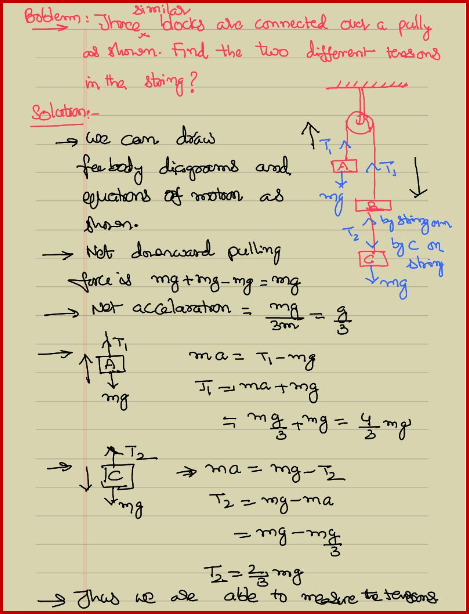 Problem: Three similar blocks are connected over a pully
as shown. Find the two different tensions
in the string?
Solution:-
→ we can draw
freebody diagrams and
equations of motion as
shown.
→ Net downward pulling
force is mg+mg-mg = mg
→ Net accelaration = mg/3m = g/3
T₁
A
T₁
mg
B
T₂
by string on
by C on
string
C
mg
→ T₁
A
mg
ma = T₁ - mg
T₁ = ma + mg
= mg/3 + mg = 4/3 mg
→ T₂
C
mg
⇒ ma = mg - T₂
T₂ = mg - ma
= mg - mg/3
T₂ = 2/3 mg
→ Thus we are able to measure tensions